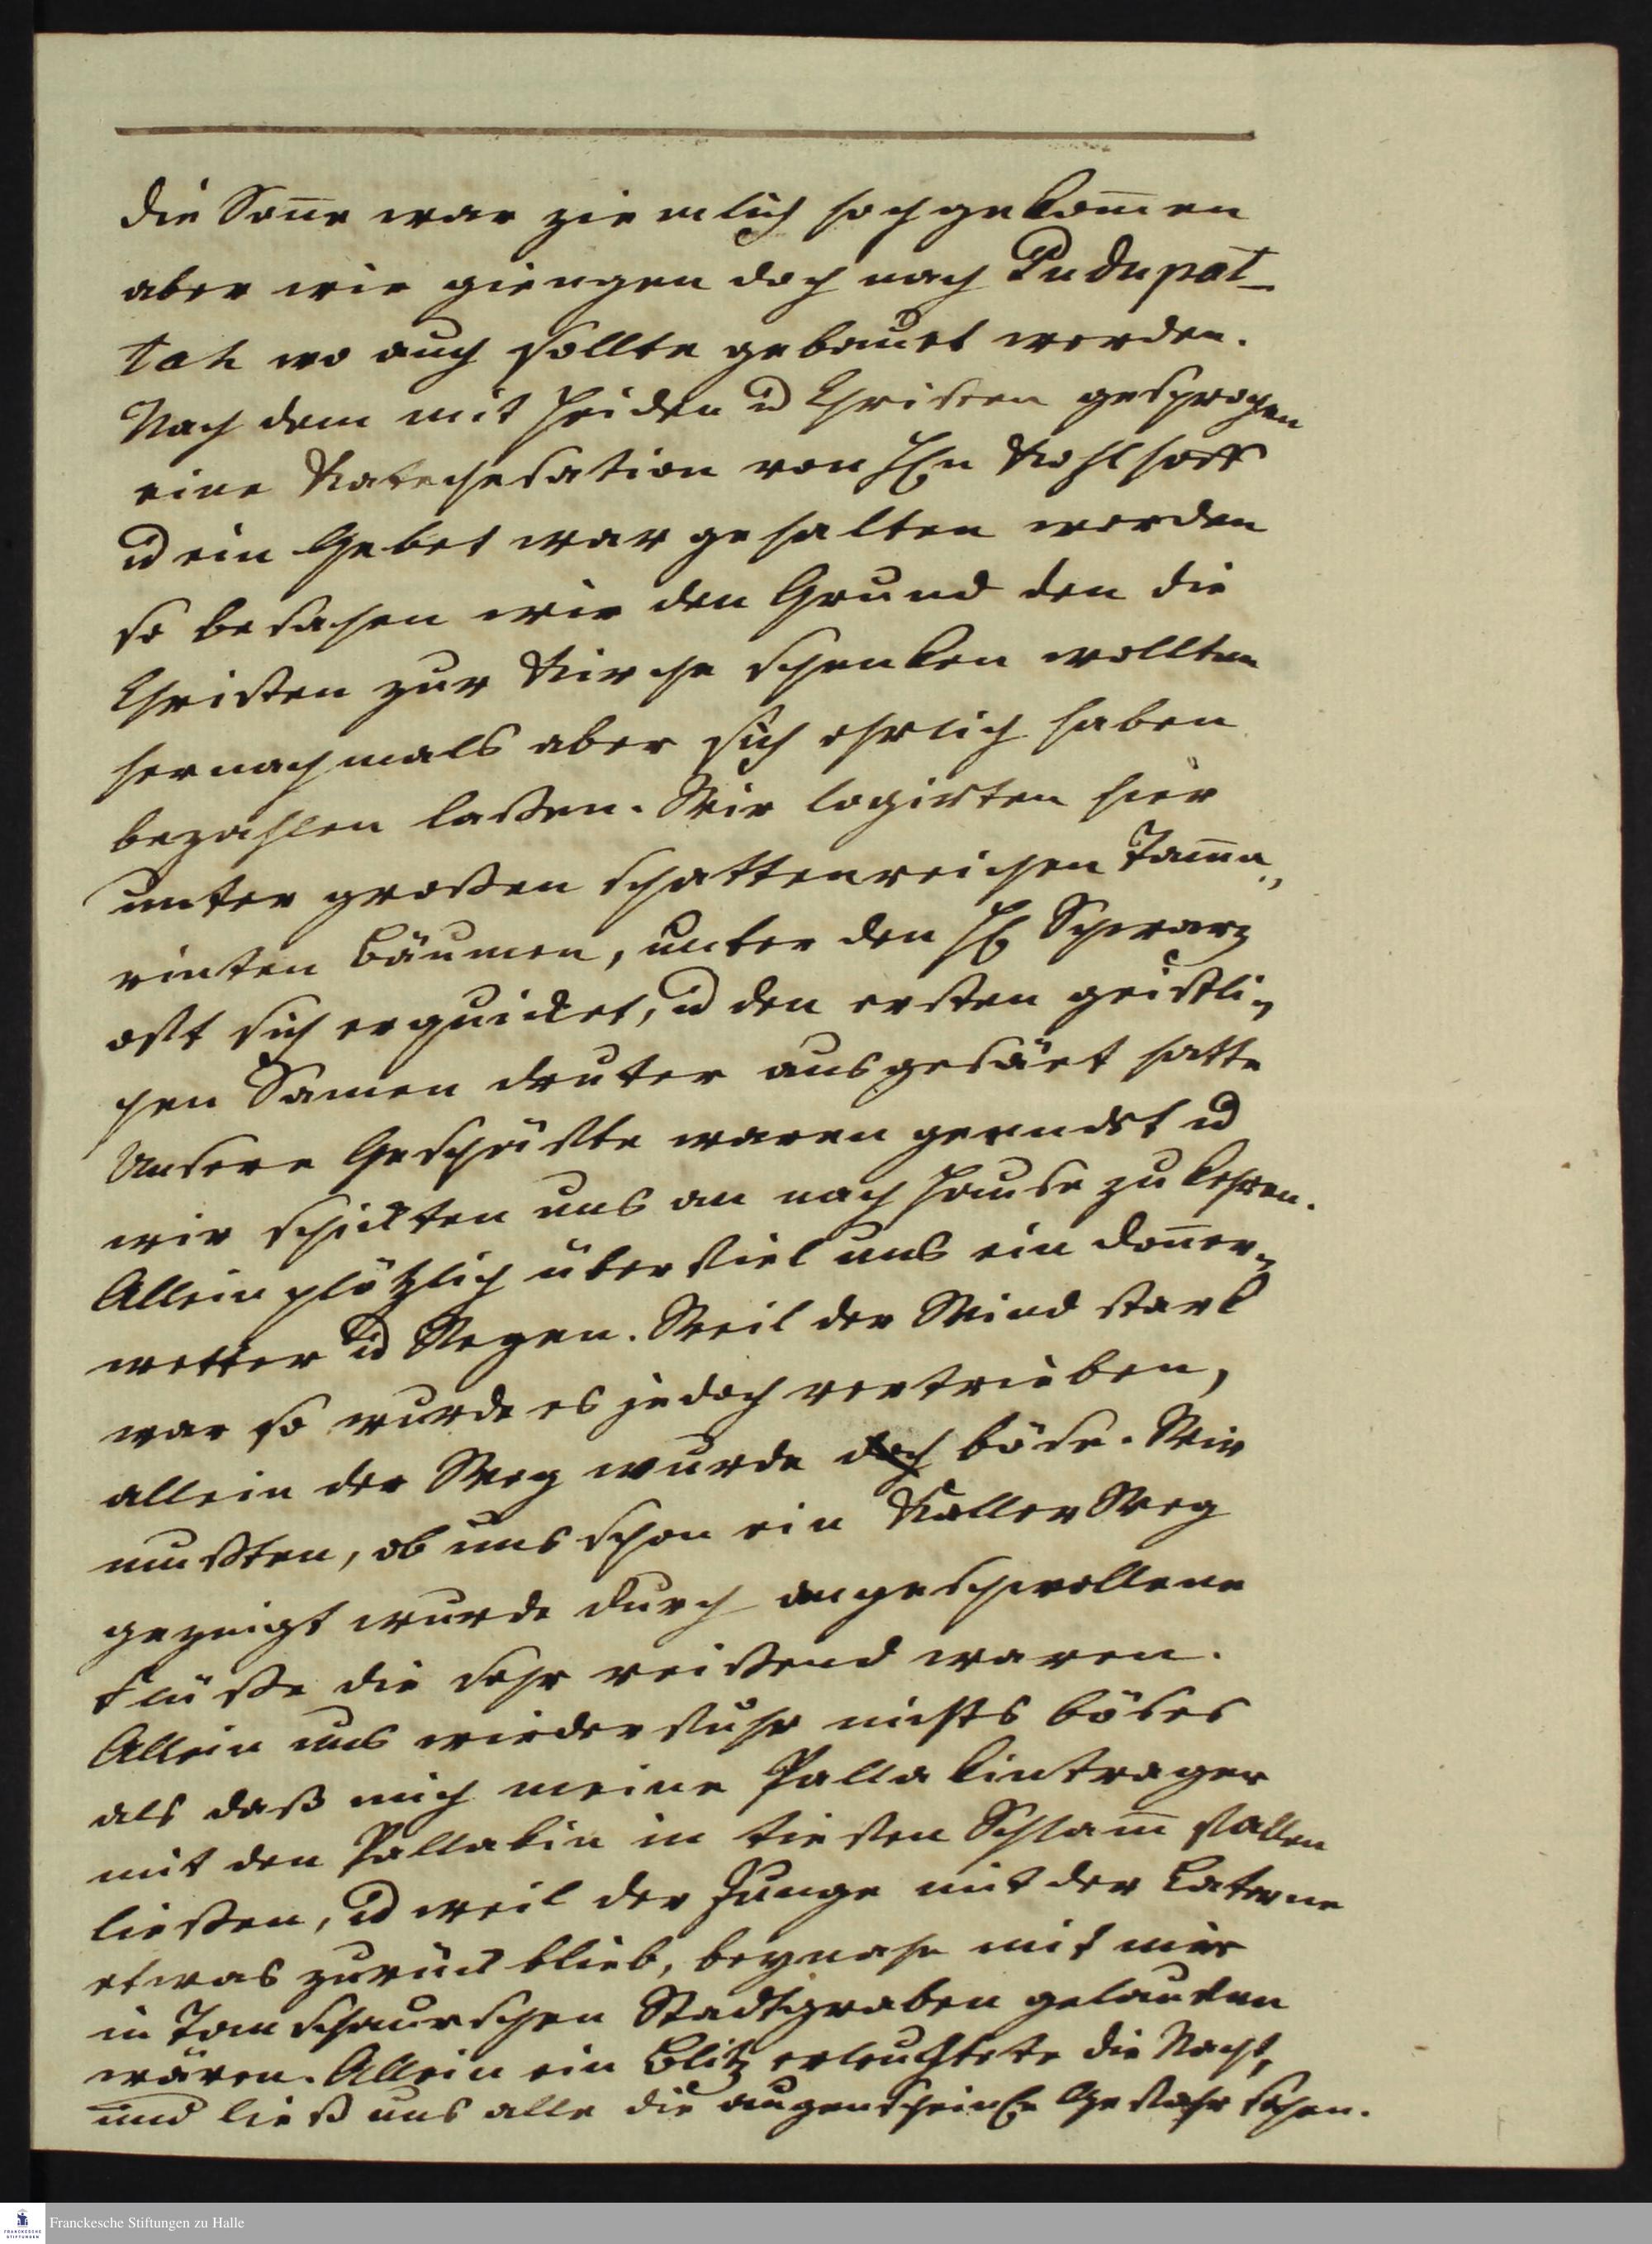 die Som̄e war ziemlich hochgekom̄en
aber wir giengen doch nach Pudupat-
tah wo auch sollte gebauet werden.
Nach dem mit Heiden u Christen gesprochen
eine Katechesation von HEn Kohlhoff
u ein Gebet war gehalten worden
so besahen wir den Grund den die
Christen zur Kirche schenken wollten
hernachmals aber sich ehrlich haben
bezahlen laßen. Wir logirten hier
unter großen schattenreichen Tam̄a„
rinten Bäumen, unter den HE Schwarz
oft sich erquicket, u den ersten geistli-
chen Samen drunter ausgesäet hatte
Unsere Geschäfte waren geendet u
wir schickten uns an nach Hause zu kehren.
Allein plötzlich überfiel uns ein don̄er-
wetter u Regen. Weil der Wind stark
war so wurde es jedoch vertrieben,
allein der Weg wurde doch böse. Wir
mußten, ob uns schon ein Kaller Weg
gezeigt wurde durch angeschwollene
Flüße die sehr reißend waren.
Allein uns wiederfuhr nichts böses
als daß mich meine Pallakintrager
mit den Pallakin in tiefen Schlam̄ fallen
ließen, u weil der Junge mit der Laterne
etwas zurück blieb, beynahe mit mir
in Tanschaurschen Stadtgraben gelaufen
wären. Allein ein Blitz erleuchtete die Nacht,
und ließ uns alle die augenscheinle Gefahr sehen.
Franckesche Stiftungen zu Halle